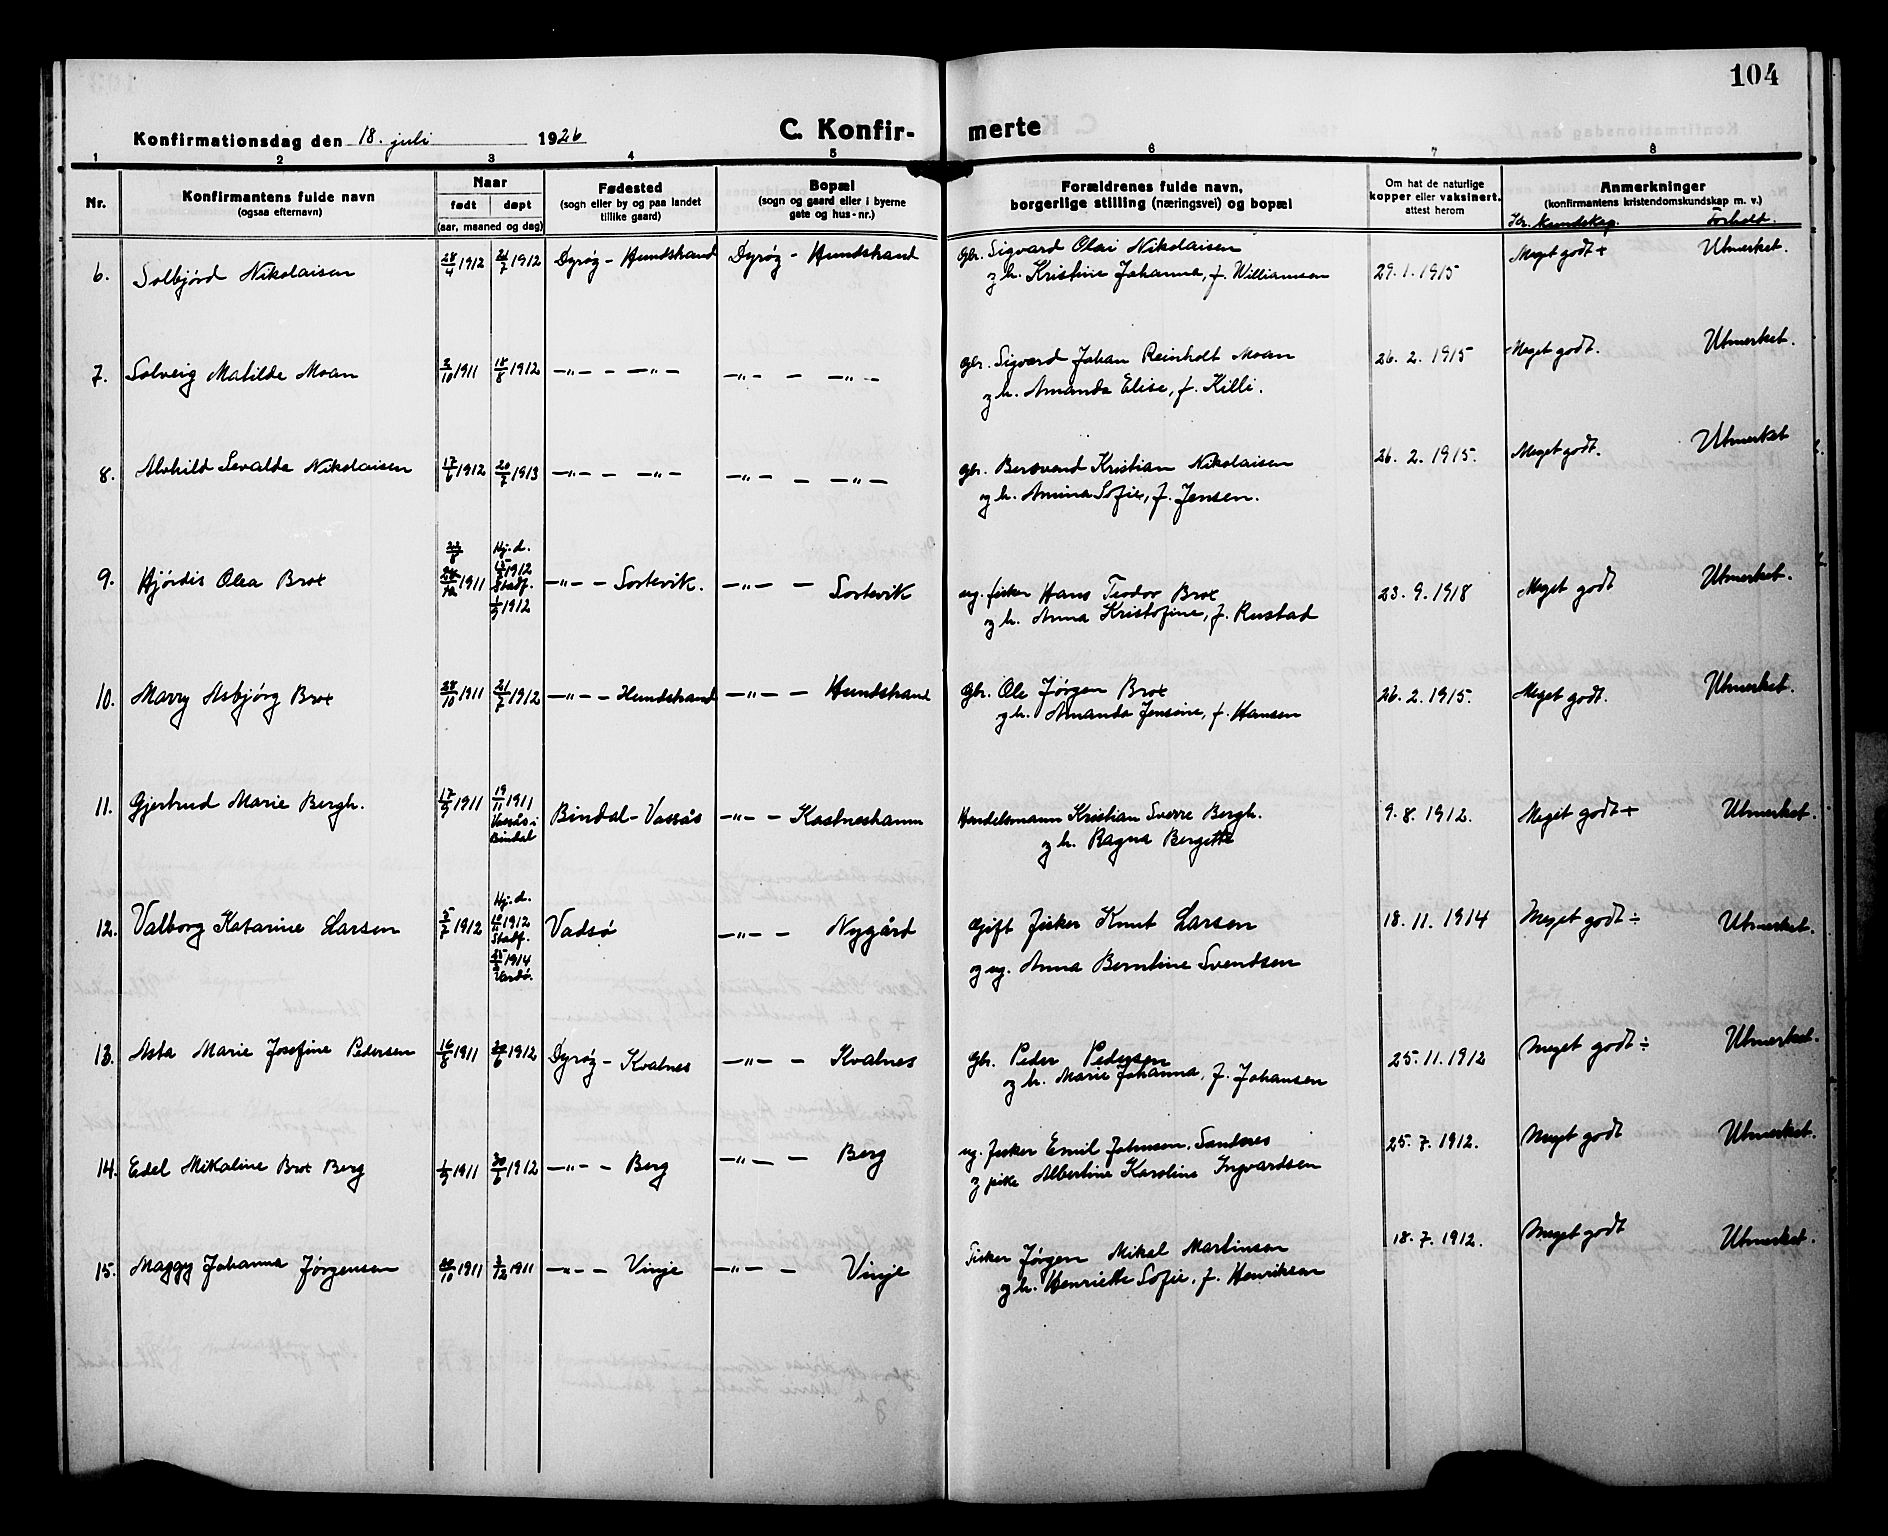 104
Konfirmationsdag den 18. juli 1926
C. Konfirmerte
1 2 3 4 5 6 7 8
Nr.
Konfirmantens fulde navn
(ogsaa efternavn)
Naar
født døpt
(aar, maaned og dag)
Fødested
(sogn eller by og paa landet
tillike gaard)
Bopæl
(sogn og gaard eller i byerne
gate og hus-nr.)
Forældrenes fulde navn,
borgerlige stilling (næringsvei) og bopæl
Om hat de naturlige
kopper eller vaksinert,
attest herom
Anmerkninger
(konfirmantens kristendomskundskap m. v.)
Kr. kundskap. Forhold.
6. Solbjørd Nikolaisen 28/4 1912 21/7 1912 Dyrøy - Hundstrand Dyrøy - Hundstrand Gbr. Sigvard Olai Nikolaisen
og h. Kristine Johanna, f. Williamsen 29.1.1915 Meget godt + Utmerket.
7. Solveig Matilde Moan 3/10 1911 18/8 1912 -„- - -„- -„- - -„- Gbr. Sigvard Johan Reinholt Moan
og h. Amanda Elise, f. Killi. 26.2.1915 Meget godt. Utmerket.
8. Alvhild Sevalda Nikolaisen 17/6 1912 20/7 1913 -„- - -„- -„- - -„- Gbr. Bersvend Kristian Nikolaisen
og h. Amina Sofie, f. Jensen. 26.2.1915. Meget godt. Utmerket
9. Hjørdis Olea Brox 1911 Hj. d.
1912
Stadf.
1/9 1912 -„- - Sortevik. -„- - Sortevik ug. fisker Hans Teodor Brox
og h. Anna Kristofine, f. Rustad 23.9.1918 Meget godt Utmerket.
10. Marry Asbjørg Brox 28/10 1911 21/7 1912 -„- - Hundstrand -„- - Hundstrand Gbr. Ole Jørgen Brox
og h. Amanda Jensine, f. Hansen 26.2.1915. Meget godt. Utmerket.
11. Gjertrud Marie Bergh. 17/9 1911 19/11 1911
Vassås i
Bindal Bindal - Vassås -„- - Kastneshamn Handelsmann Kristian Sverre Bergh.
og h. Ragna Bergette 9.8.1912. Meget godt + Utmerket.
12. Valborg Katarine Larsen 5/7 1912 Hj. d.
1912
Stadf.
1914
Vardø. Vadsø -„- - Nygård Gift fisker Knut Larsen
og ug. Anna Berntine Svendsen 18.11.1914 Meget godt ÷ Utmerket.
13. Asta Marie Josefine Pedersen 16/8 1911 30/6 1912 Dyrøy - Kvalnes -„- - Kvalnes Gbr. Peder Pedersen
og h. Marie Johanna, f. Johansen 25.11.1912 Meget godt ÷ Utmerket.
14. Edel Mikaline Brox Berg 1/9 1911 30/6 1912 -„- - Berg -„- - Berg ug. fisker Emil Johnsen. Sandnes
og pike Albertine Karoline Ingvardsen 25.7.1912. Meget godt Utmerket.
15. Maggy Johanna Jørgensen 20/10 1911 3/12 1911 -„- - Vinje -„- - Vinje Fisker Jørgen Mikal Martinsen
og h. Henriette Sofie, f. Henriksen 18.7.1912. Meget godt Utmerket.